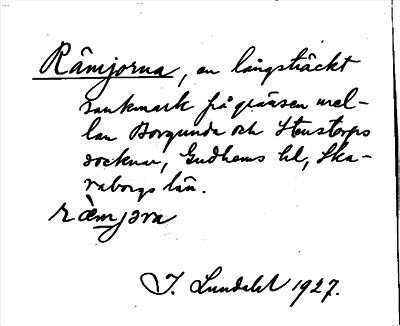 Råmjorna, en långsträckt
sankmark på gränsen mel-
lan Borgunda och Stenstorps
socknar, Gudhems hd, Ska-
raborgs län.
ràmjɔra
J. Lundahl 1927.